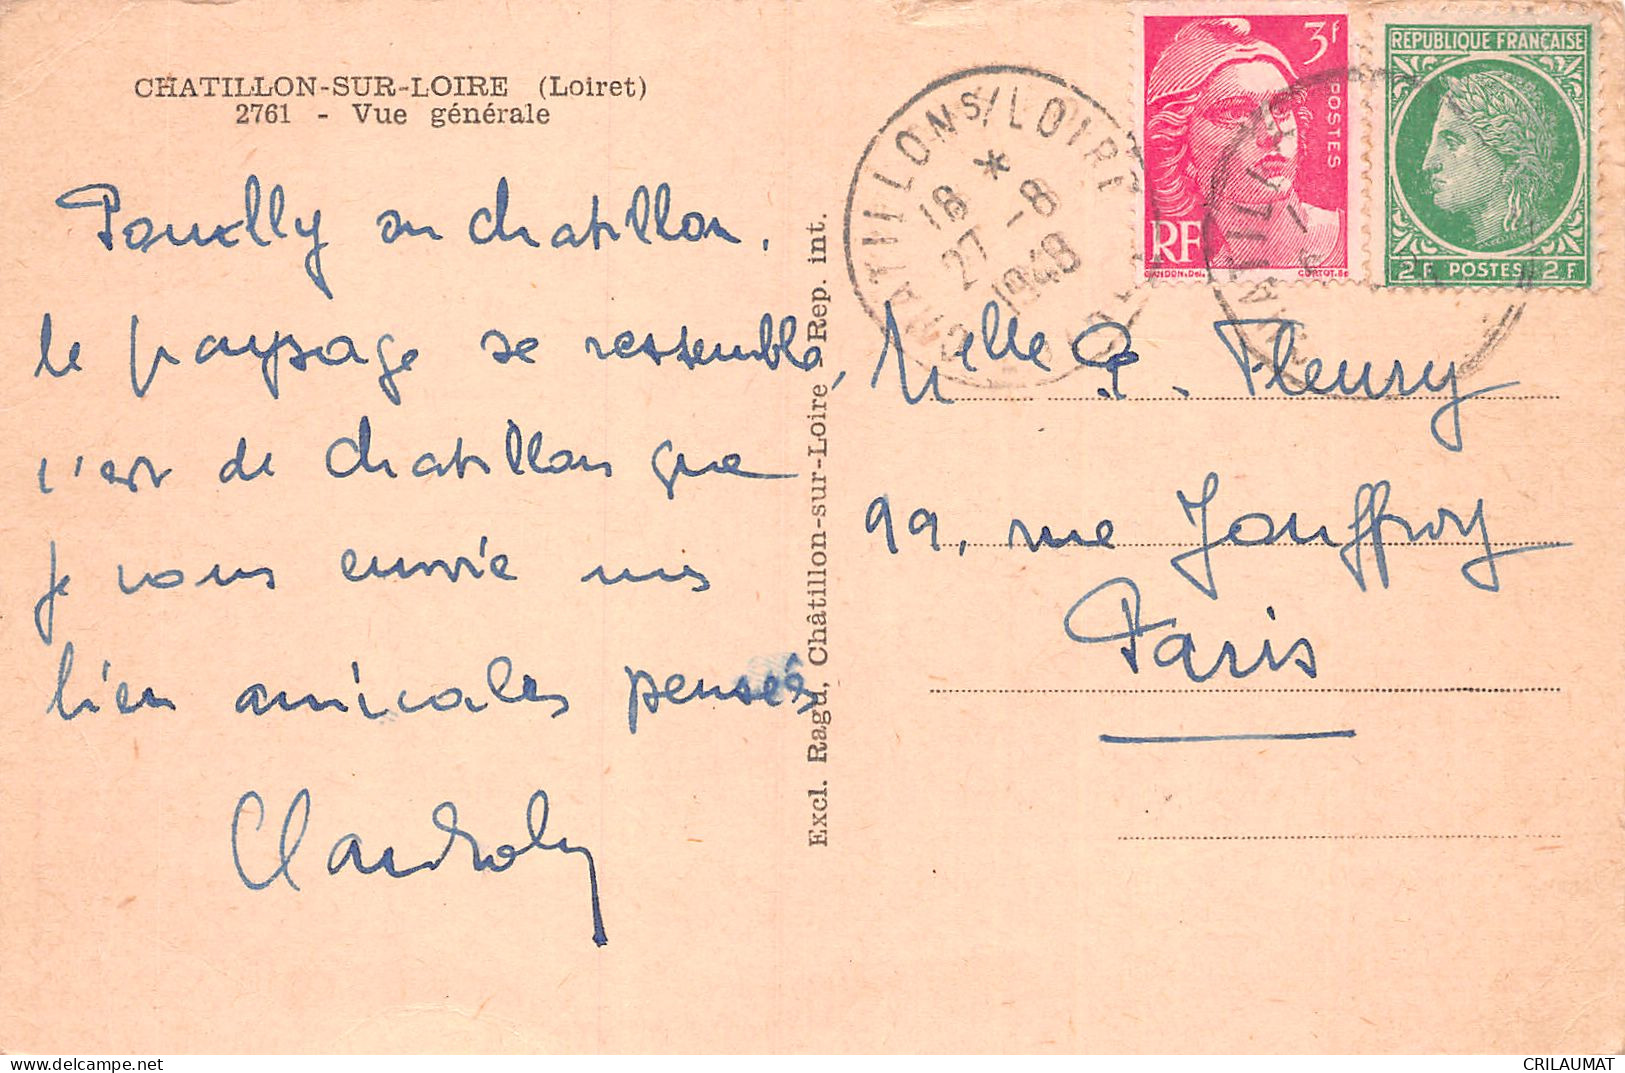 CHATILLON-SUR-LOIRE (Loiret)
2761 - Vue générale
Pouilly ou chatillon,
le paysage se ressemble,
c'est de chatillon que
je vous envoie mes
bien amicales pensées
Excl. Ragu, Châtillon-sur-Loire - Rep. int.
CHATILLON S/LOIRE
18 * 27 - 8
1948
3f
POSTES
RF
GANDON.Del.
CORTOT.Sc
REPUBLIQUE FRANÇAISE
2F POSTES 2F
Melle P. Fleury
99, rue Jouffroy
Paris
CRILAUMAT